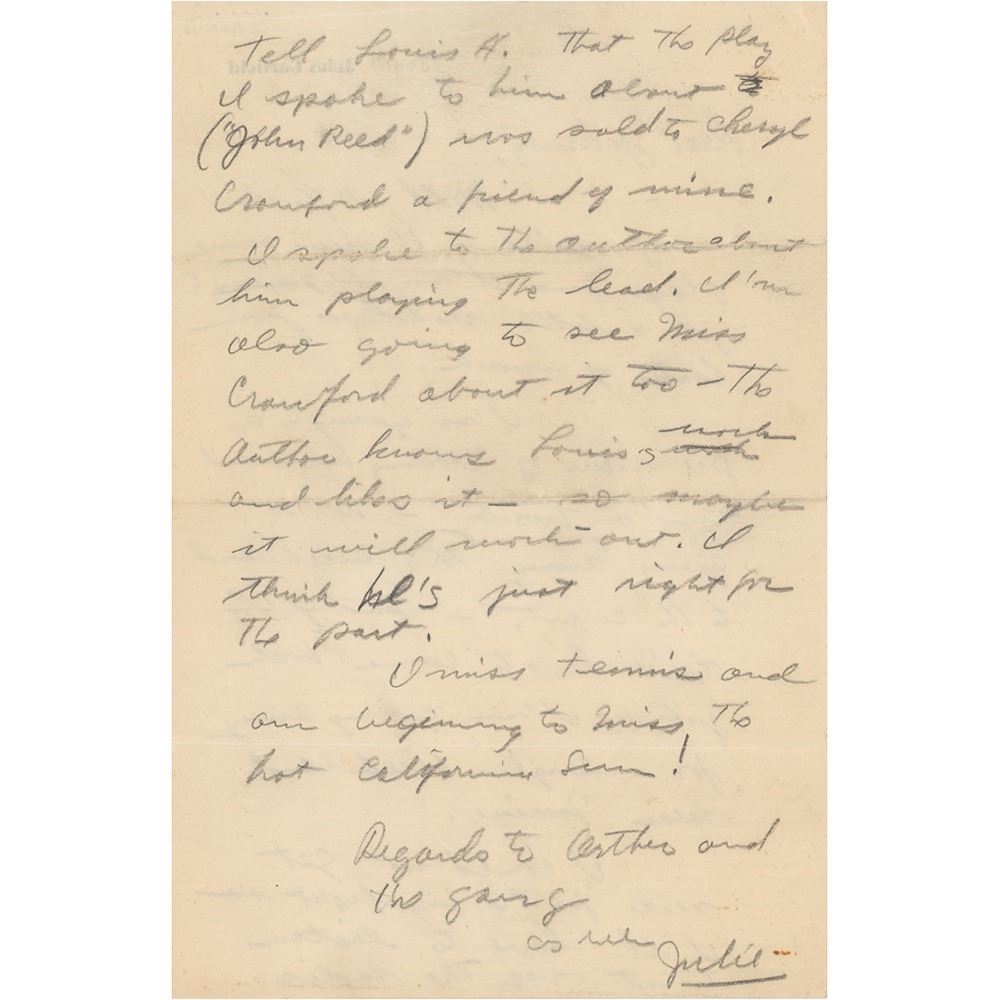 Tell Louis H. that the play
I spoke to him about
("John Reed") was sold to Cheryl
Crawford a friend of mine.
I spoke to the author about
him playing the lead. I'm
also going to see Miss
Crawford about it too — The
Author knows Louis's work
and likes it — so maybe
it will work out. I
think he's just right for
the part.
I miss tennis and
am begining to miss the
hot California Sun!
Regards to Arthur and
the gang
as
Julie